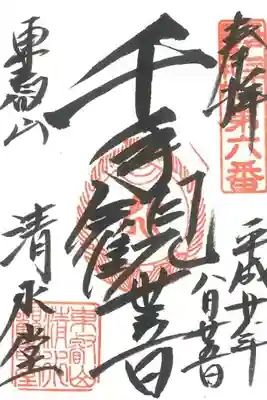 奉拝
第六番
千手觀世音
東叡山
清水堂
平成廿
八月廿五日
東叡山
清水
観音堂